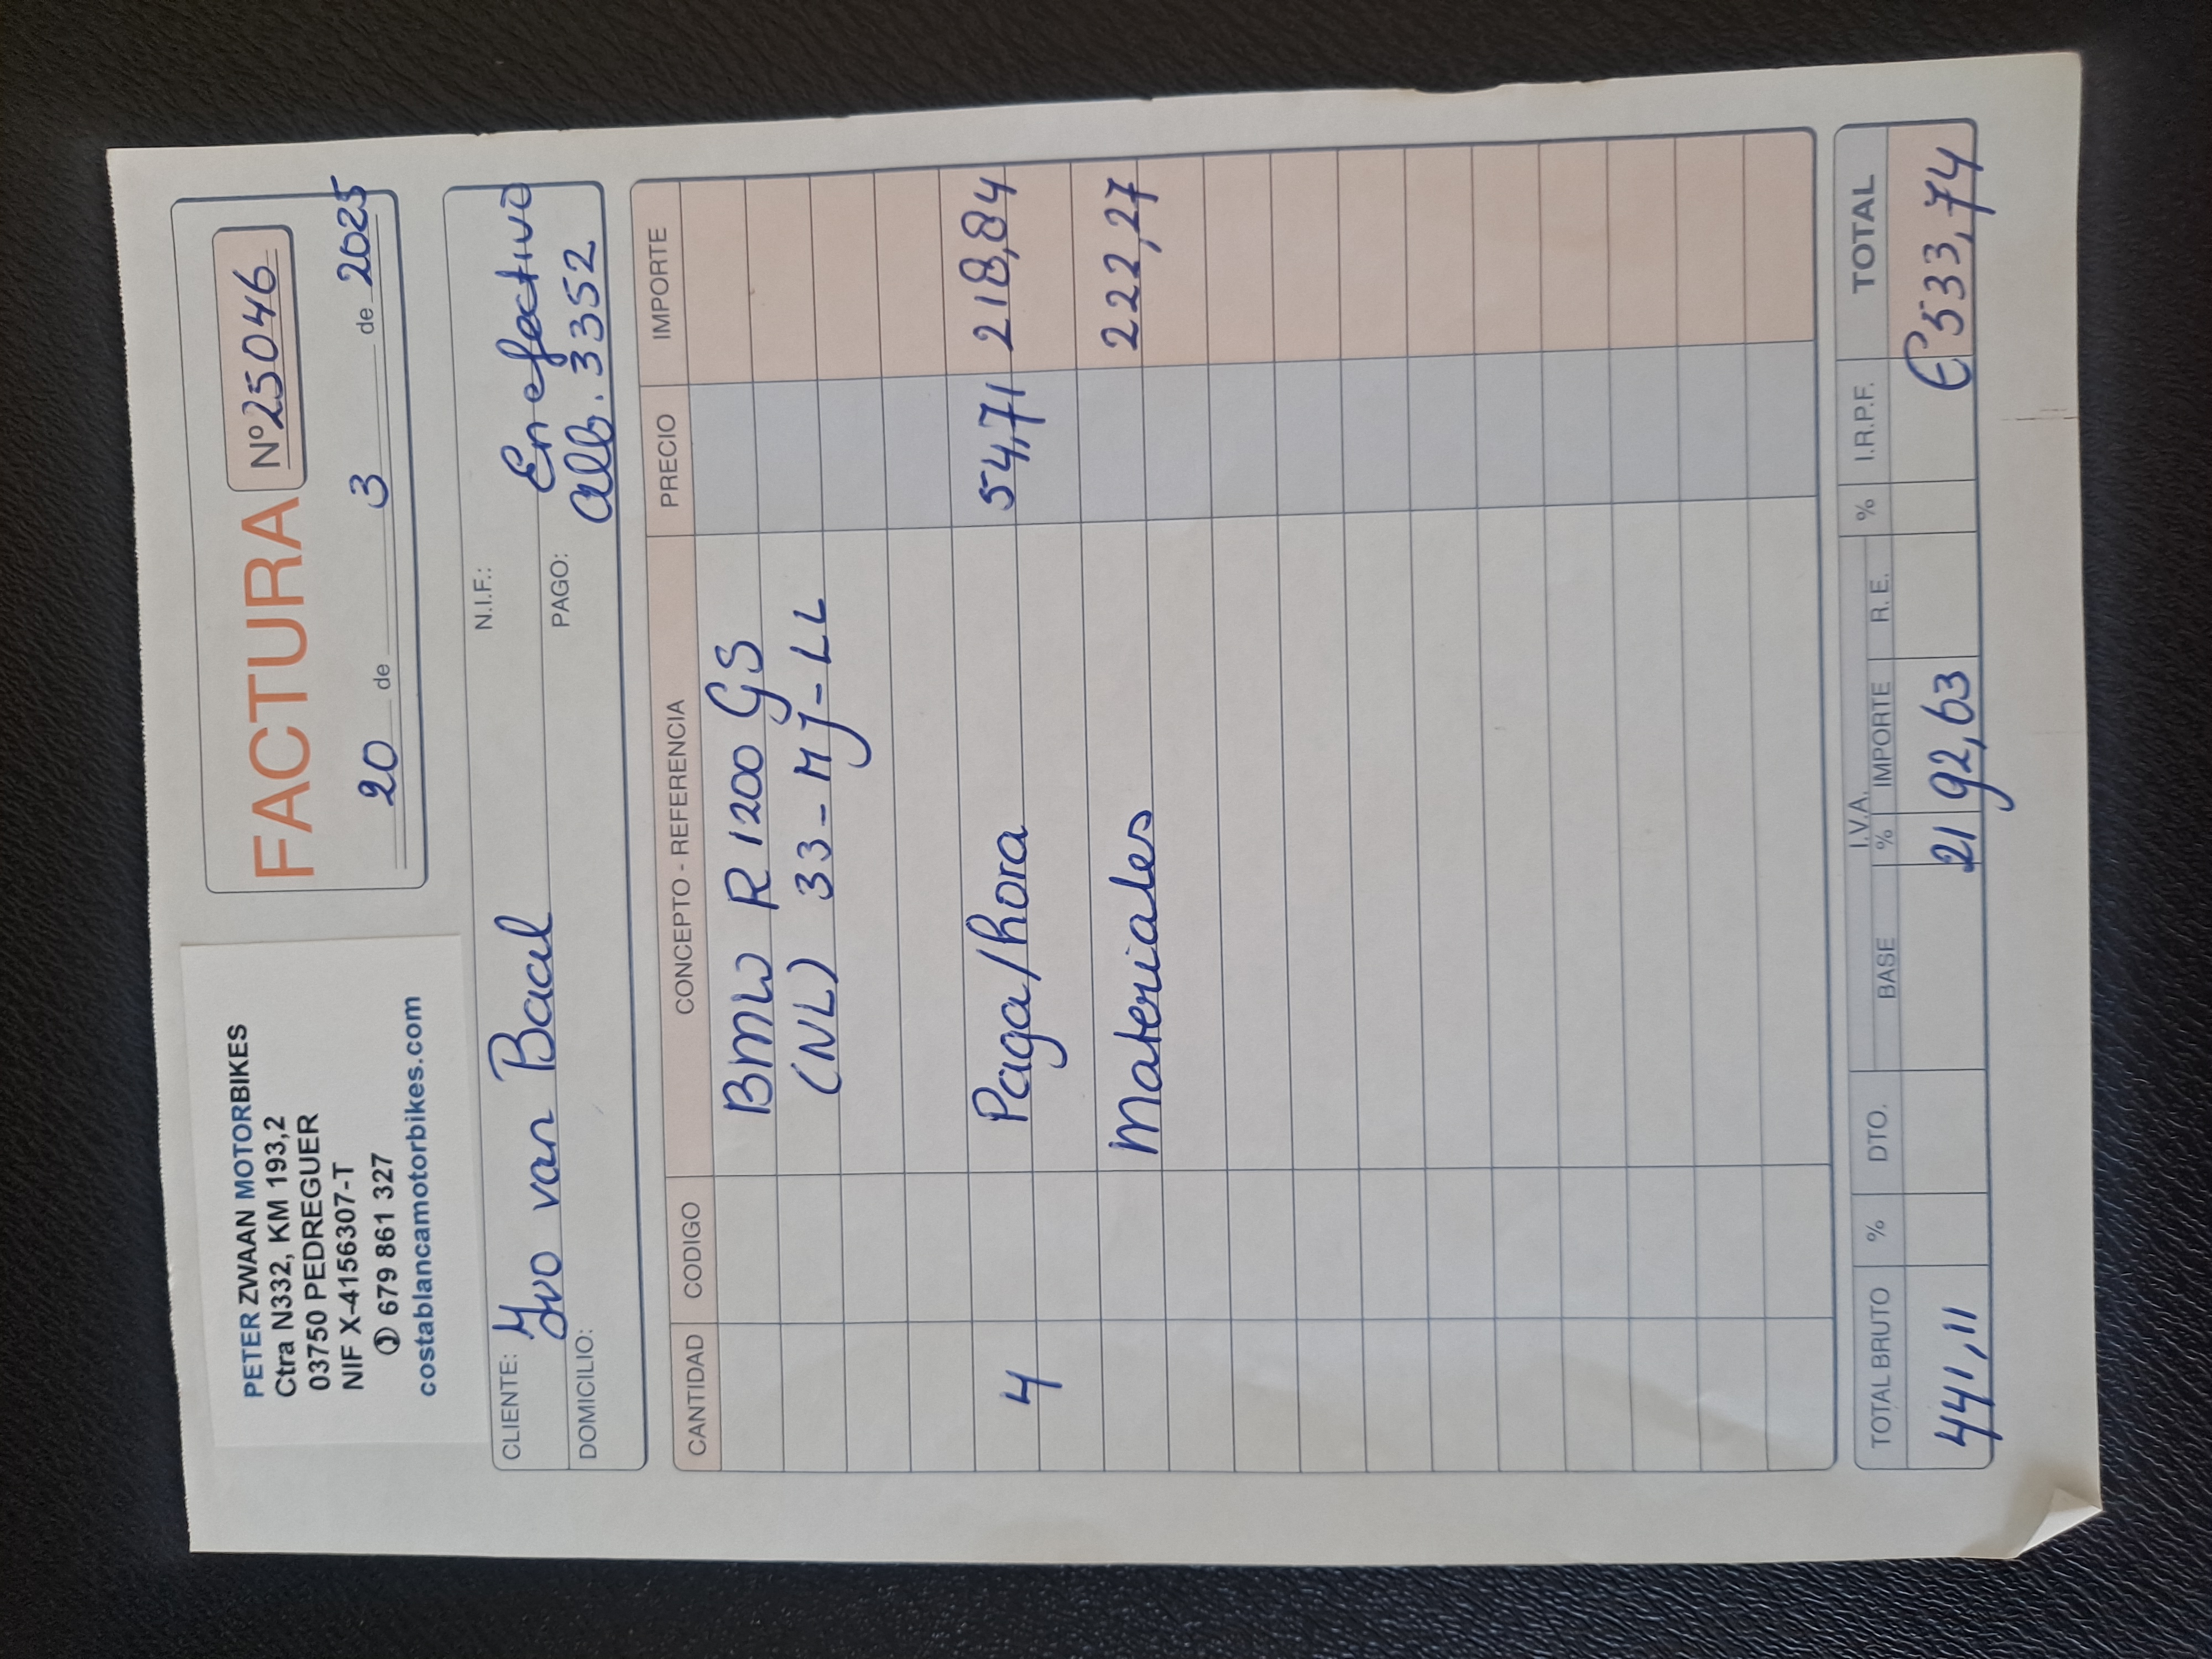 PETER ZWAAN MOTORBIKES
Ctra N332, KM 193,2
03750 PEDREGUER
NIF X-4156307-T
679 861 327
costablancamotorbikes.com
FACTURA Nº 25046
20 de 3 de 2025
CLIENTE: Ivo van Baal N.I.F.:
DOMICILIO: PAGO: En efectivo
alb. 3352
CANTIDAD CODIGO CONCEPTO - REFERENCIA PRECIO IMPORTE
BMW R 1200 GS
(NL) 33-MJ-LL
4 Paga/hora 54,71 218,84
Materiales 222,27
I.V.A.
TOTAL BRUTO % DTO. BASE % IMPORTE R.E. % I.R.P.F. TOTAL
441,11 21 92,63 € 533,74